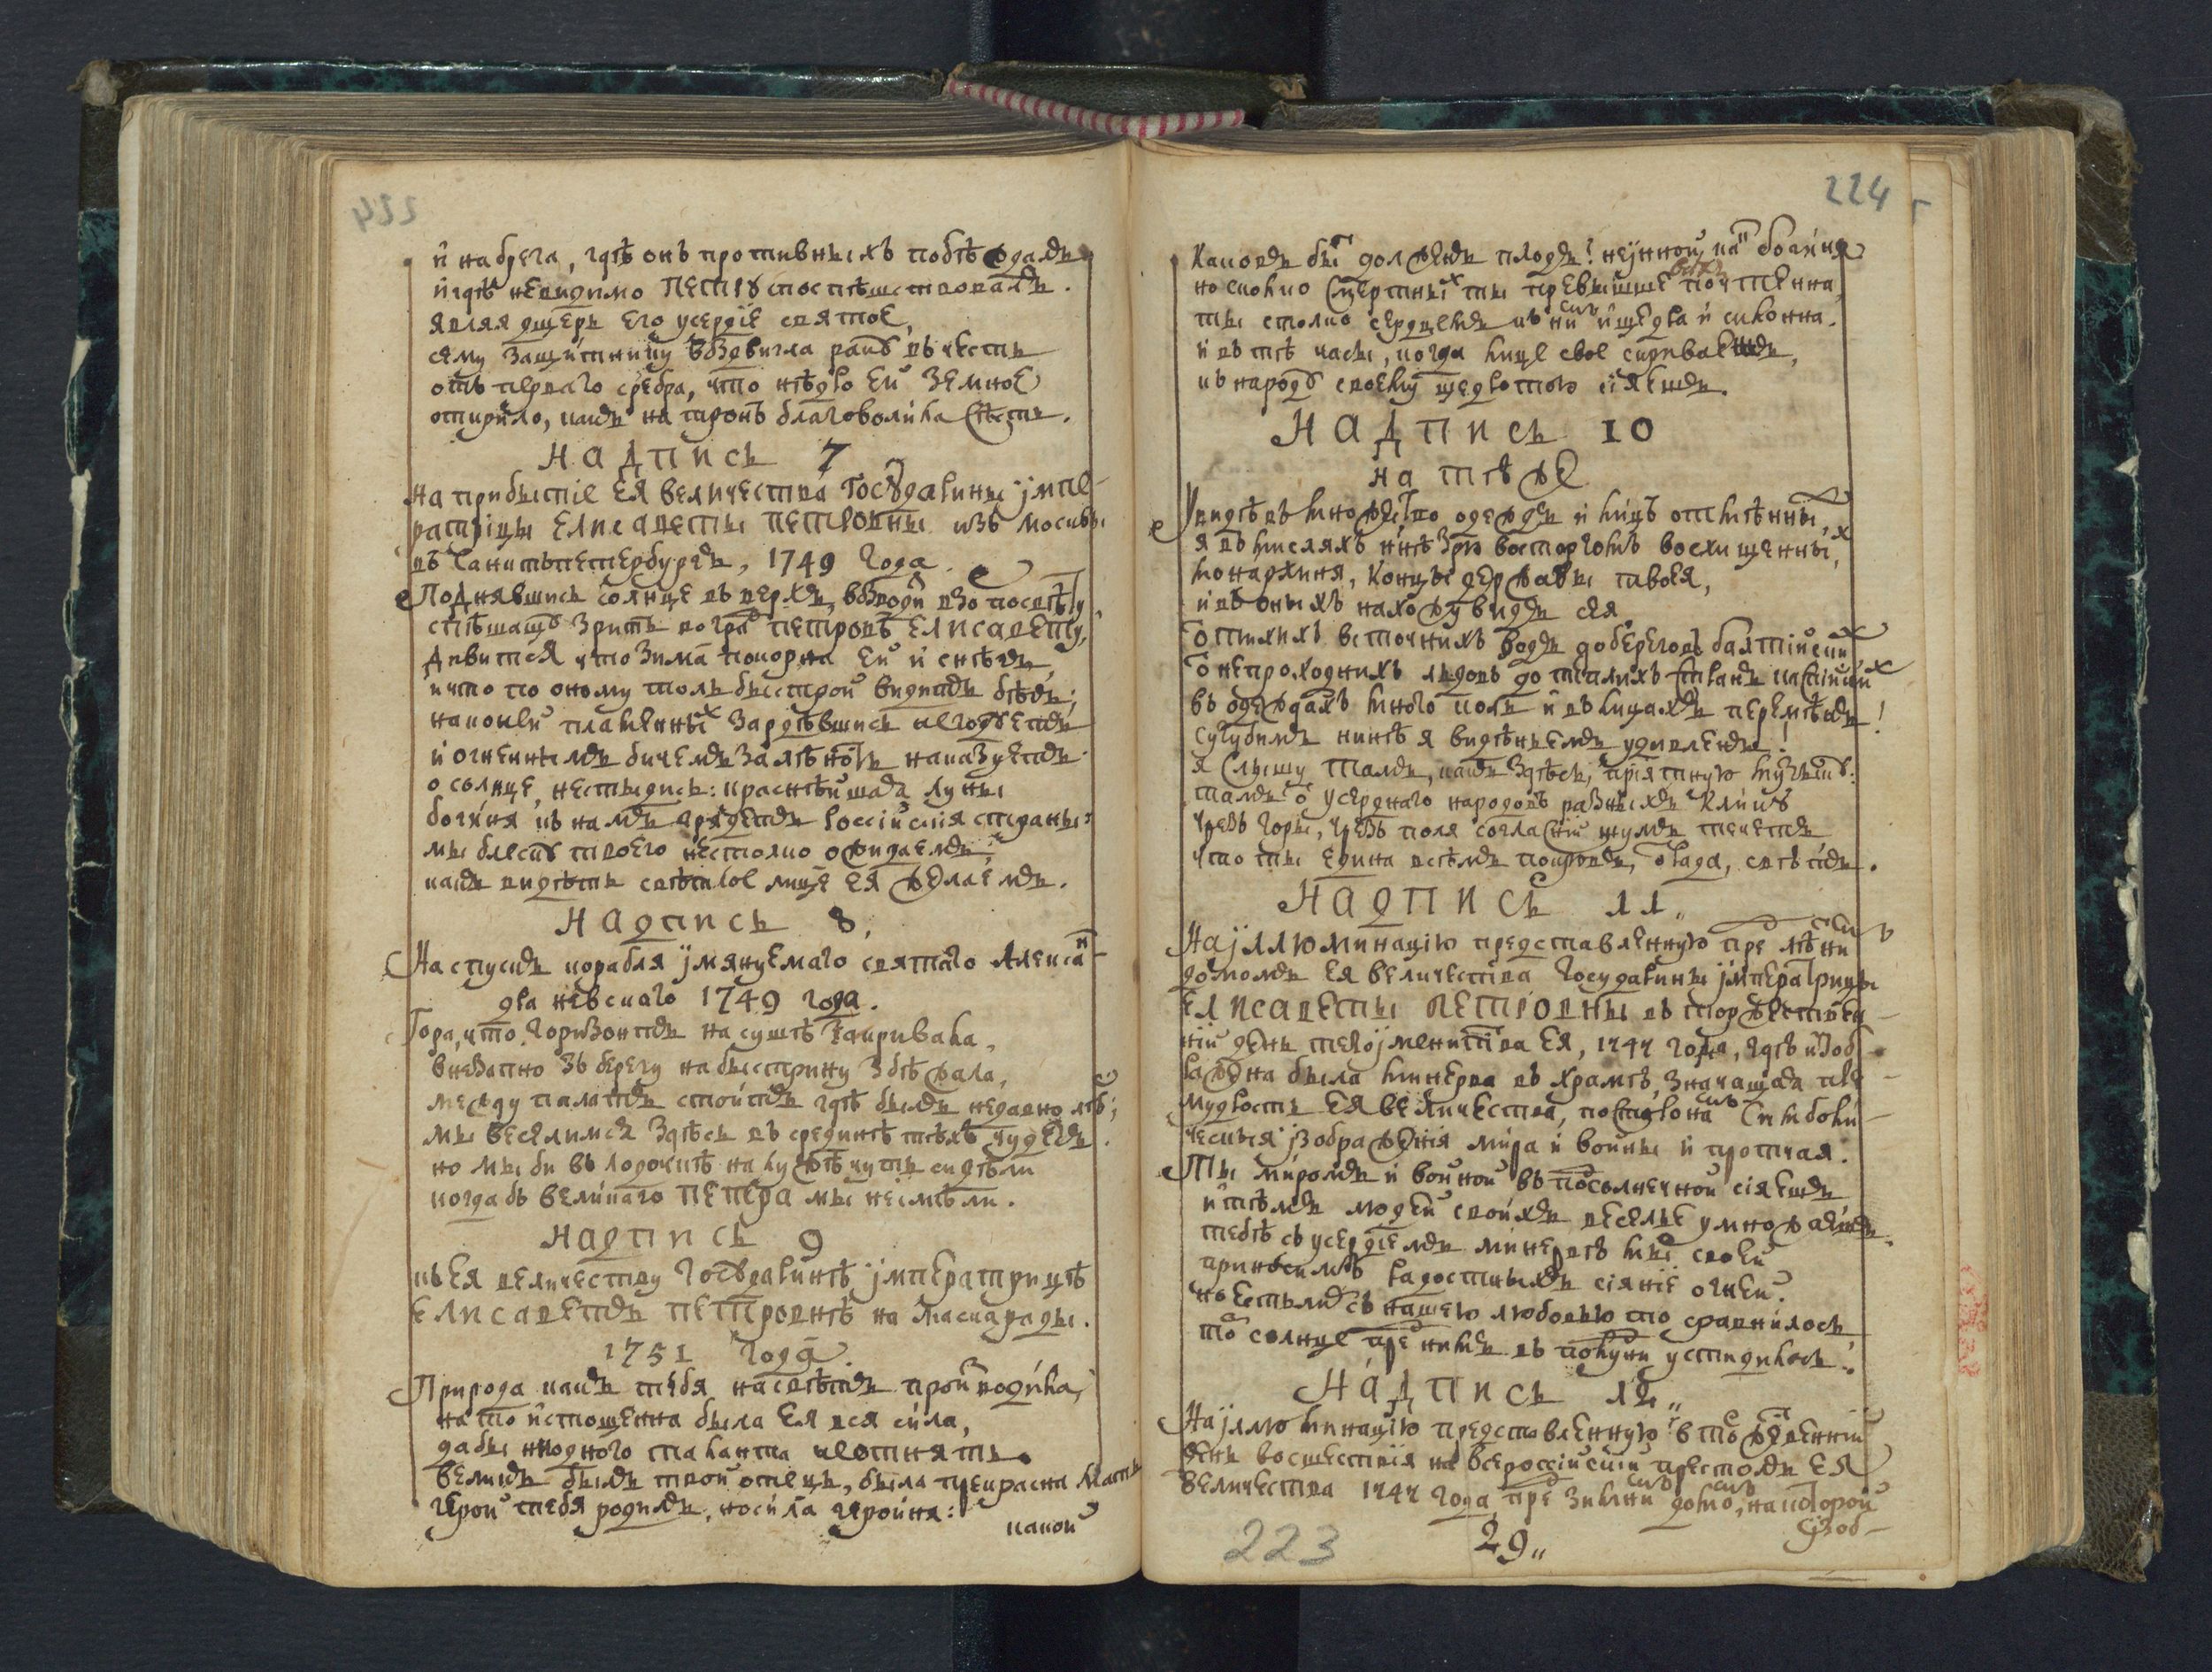 и на брега, гдѣ онъ противныхъ побѣждалъ
и гдѣ невидимо Петръ споспѣшствовалъ.
являя дщерь его усердїе святое,
сему защитнику воздвигла ракъ въ честь
отъ перваго сребра, что нѣдро ей земное
открыло, какъ на тронъ благоволила сѣсть.
Надпись 7
На прибытїе Ея величества Государини импе-
ратрїцы Елисаветы Петровны изъ Москвы
въ Санктъпетербургъ, 1749 Года.
Поднявшись солнце въ верхъ, возводи взо посвѣту
спѣшащъ зрить во гра Петровъ Елисавету,
Дивится что зима покорна ей и снѣгъ,
и что по оному толь быстрой видитъ бѣгъ;
на коней пламены зардѣвшись негодуетъ
и огненнымъ бичемъ за лѣность наказуетъ
о солнце, нестыдись: краснѣйшая луны
богиня къ намъ грядетъ россійскія страны:
мы блескъ твоего нестолко ожидаемъ,
какъ видѣть свѣтлое лице ея желаемъ.
Надпись 8,
На спускъ корабля имянуемаго святаго Алекса-
дра невскаго 1749 года.
Гора, что горизонтъ на сушѣ закривала,
внезапно зъ берегу на быстрину збѣжала,
между палатъ стоитъ гдѣ былъ недавно лѣ;
мы веселимся здѣсь въ срединѣ тѣхъ чудесъ.
но мы би въ лодочкѣ на лужѣ чуть сидѣли
когдабъ великаго Петра мы неимѣли.
Надпись 9
къ Ея величеству Государинѣ императрицѣ
Елисаветъ Петровнѣ на маскарады.
1751 Года.
Природа какъ тебя на свѣтъ производила,
на то истощенна была ея вся сила,
дабы ниодного таланта неотнять.
великъ былъ твой отецъ, была прекрасна мать
герой тебя родилъ, носила героиня:
какой
224
Каковъ бы долженъ плодъ? неиной ка богиня
но сколко смертны ты превышше всѣхъ почтенна
ты столко сердцемъ къ ни и щедра и склонна.
и въ тѣ часы, когда лице свое скриваешъ,
къ народу своему щедротою сіяешъ.
Надпись 10
на тѣже
Увидѣвъ множество одеждъ и лицъ отмѣнны,
я въ мысляхъ ннѣ зрю восторгомъ восхищенны,
монархиня, концы державы твоея,
и въ оныхъ нахожу видъ ея.
о тихихъ всточнихъ водъ доберегов балтійски
о непроходнихъ лѣдовъ до теплихъ странъ каспійски
въ одеждахъ много коль и въ лицахъ перемѣнъ!
сугубимъ нинѣ я видѣньемъ удивленъ!
я слышу тамъ, какъ здѣсь, прїятную музыкъ:
тамъ о усерднаго народовъ разныхъ кликъ
чрезъ горы, чрезъ поля согласній шумъ течетъ
что ты едина всѣмъ покровъ, отрада, свѣтъ.
Надпись 11,,
На иллюминацію представленную пре лѣтни
домомъ ея величества Государини императрицы
Елисаветы Петровны въ торжествен-
ній день тезоименитства Ея, 1747 года, гдѣ изоб-
ражена была минерва въ храмѣ, значащая пре-
мудрость Ея величества, по сторона символи-
ческія изображенія мира и войны и протчая.
Ты миромъ и войной въ посолнечной сіяешъ
и тѣмъ людей своихъ веселье умножаешъ.
тебѣ съ усердіемъ минервѣ мы своей
приносимъ радостныхъ сіяніе огней.
но естьлибъ съ нашею любовью то сравнилось
то солнце пре нимъ въ полудни устидилось.
Надпись 12,,
На иллюминацію представленную в торжественній
день восшествія на всероссійскій престолъ Ея
величества 1747 года пре зимни домо, на которой
изоб-
29,,
223